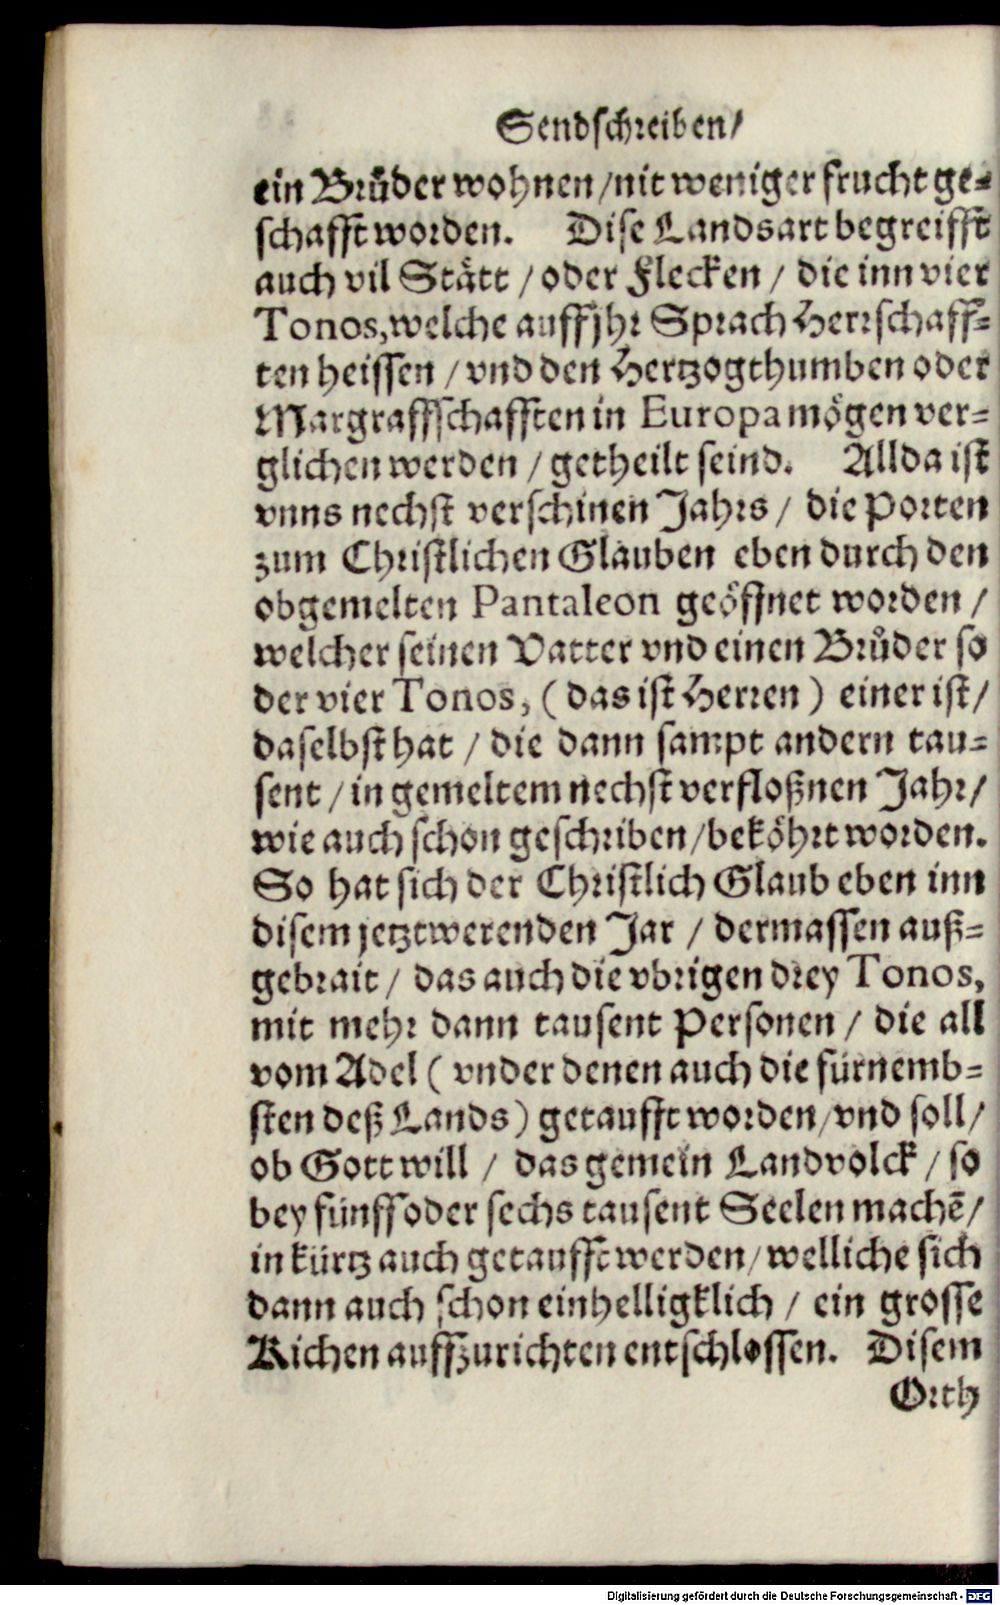 Sendschreiben/
ein Brůder wohnen/nit weniger frucht ge-
schafft worden. Dise Landsart begreifft
auch vil Stätt / oder Flecken / die inn vier
Tonos, welche auff jhr Sprach Herrschaff-
ten heissen / vnd den Hertzogthumben oder
Margraffschafften in Europa mögen ver-
glichen werden / getheilt seind. Allda ist
vnns nechst verschinen Jahrs / die Porten
zum Christlichen Glauben eben durch den
obgemelten Pantaleon geöffnet worden /
welcher seinen Vatter vnd einen Brůder so
der vier Tonos, ( das ist Herren ) einer ist/
daselbst hat / die dann sampt andern tau-
sent / in gemeltem nechst verfloßnen Jahr/
wie auch schon geschriben/beköhrt worden.
So hat sich der Christlich Glaub eben inn
disem jetztwerenden Jar / dermassen auß-
gebrait / das auch die vbrigen drey Tonos,
mit mehr dann tausent Personen / die all
vom Adel ( vnder denen auch die fürnemb-
sten deß Lands ) getaufft worden/vnd soll/
ob Gott will / das gemein Landvolck / so
bey fünff oder sechs tausent Seelen machē/
in kürtz auch getaufft werden/welliche sich
dann auch schon einhelligklich / ein grosse
Kichen auffzurichten entschlossen. Disem
Orth
Digitalisierung gefördert durch die Deutsche Forschungsgemeinschaft - DFG